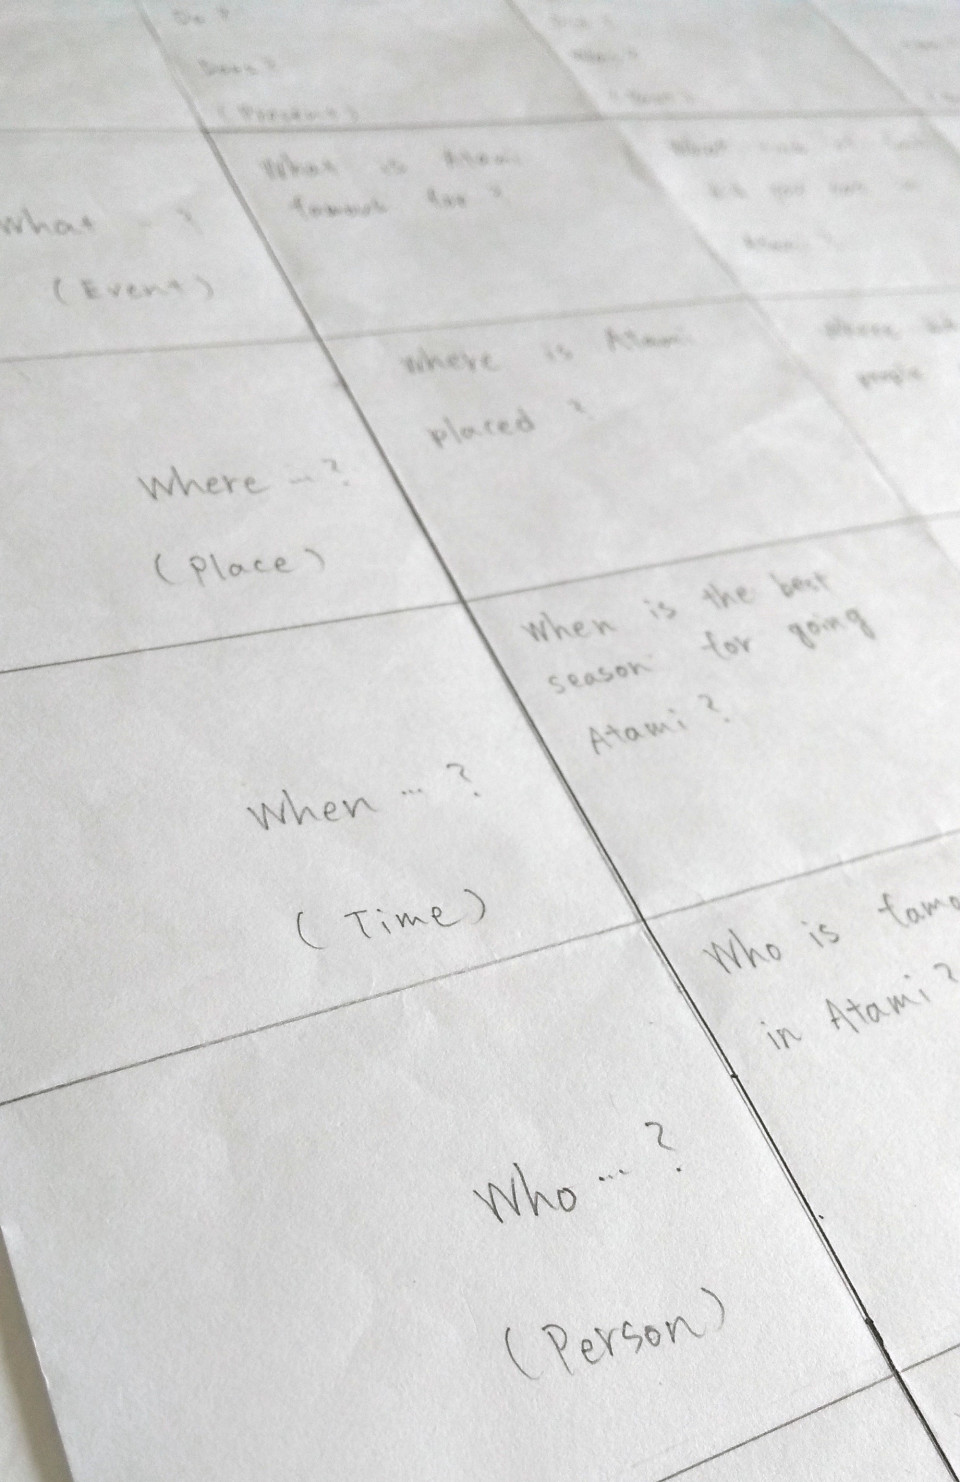 Do ?
Does ?
(Present)
What ... ?
(Event)
What is Atami
famous for ?
What
in
Atami ?
Where ... ?
(Place)
Where is Atami
placed ?
Where
people
When ... ?
(Time)
When is the best
season for going
Atami ?
Who ... ?
(Person)
Who is famo
in Atami ?